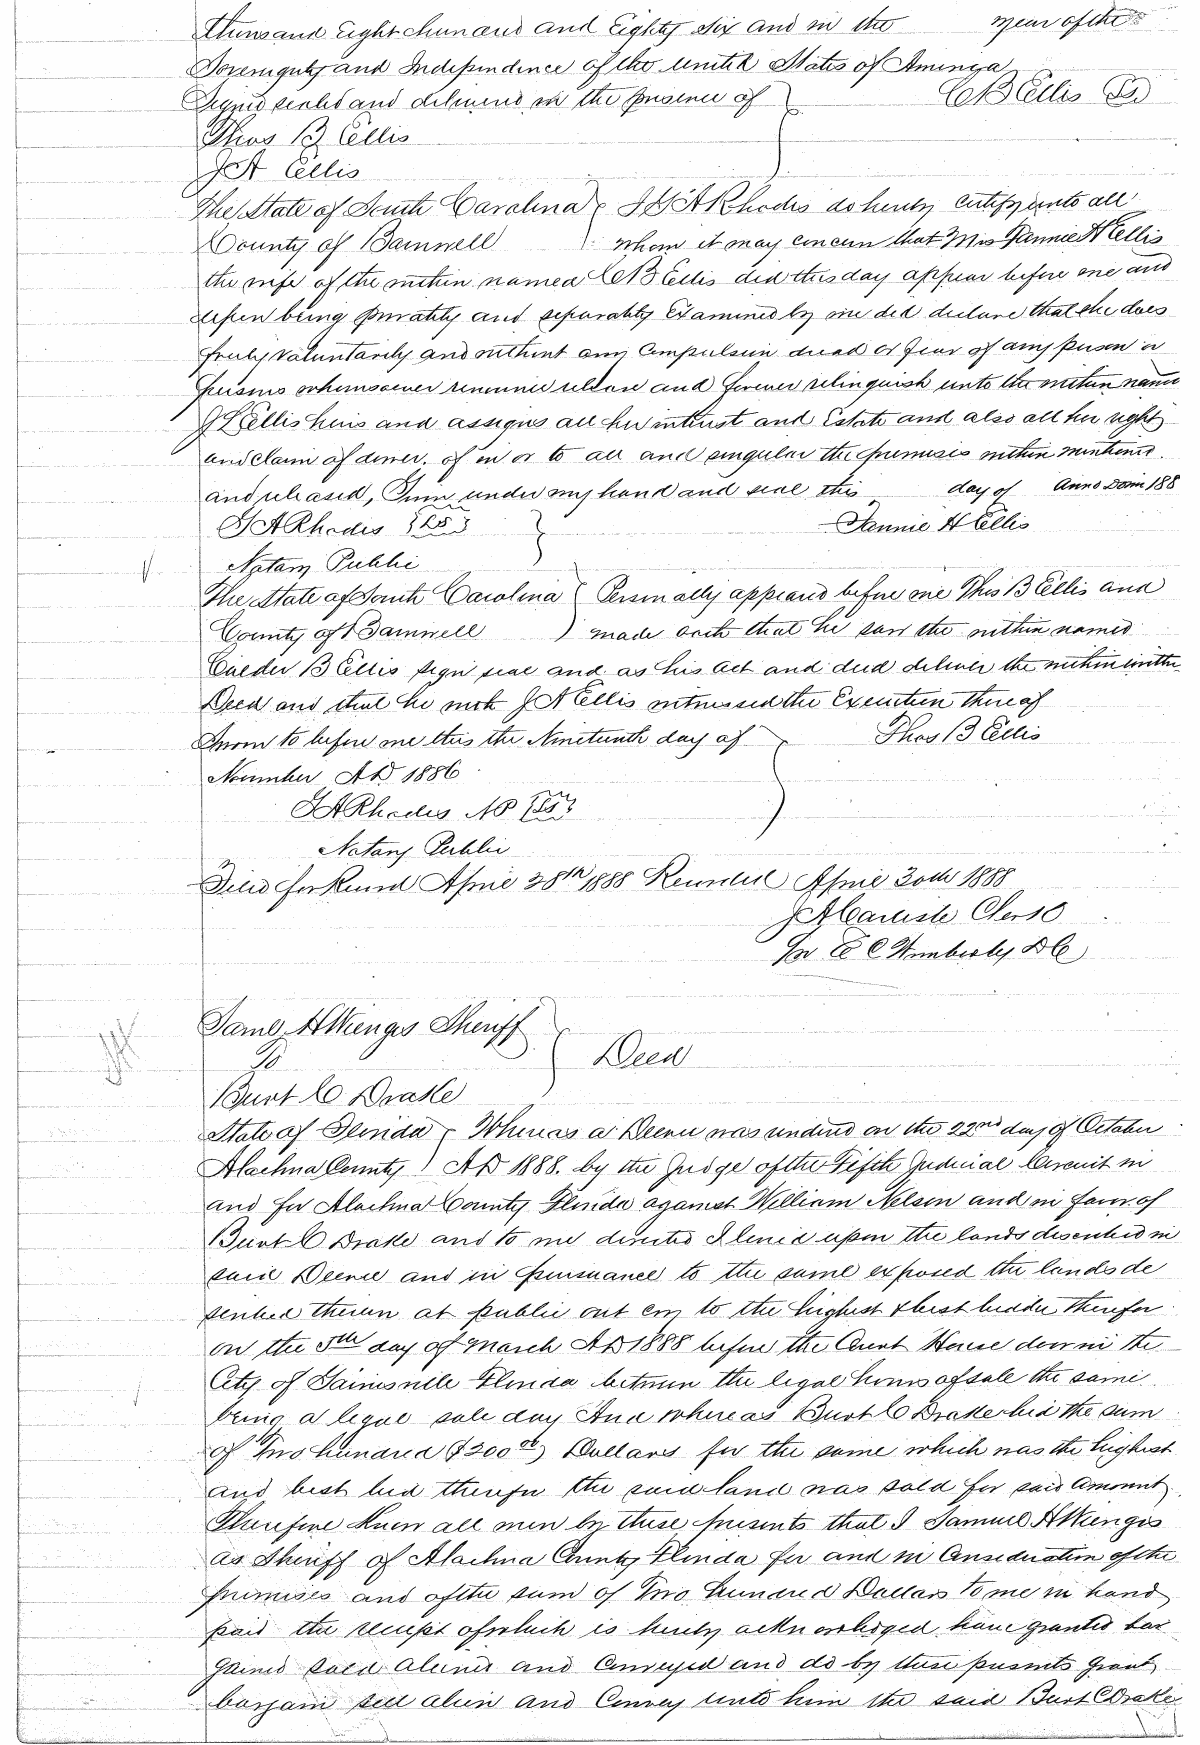 thousand Eight hundred and Eighty Six and in the year of the
Sovereignty and Independence of the united States of America
Signed sealed and delivered in the presence of C B Ellis
Thos B Ellis
J A Ellis
The State of South Carolina I J A Rhodes do hereby certify unto all
County of Barnwell whom it may concern that Mrs Fannie H Ellis
the wife of the within named C B Ellis did this day appear before me and
upon being privately and separably Examined by me did declare that she does
freely voluntarily and without any Compulsion dread or fear of any person or
persons whomsoever renounce release and forever relinquish unto the within name
J Ellis heirs and assigns all her intrust and Estate and also all her right
and Claim of dower. of in or to all and singular the premises within mentioned
and released, Given under my hand and seal this day of Anno Dom 188
J A Rhodes {LS} Fannie H Ellis
Notary Public
The State of South Carolina Personally appeared before me Thos B Ellis and
County of Barnwell made oath that he saw the within named
B Ellis sign seal and as his act and deed deliver the within writtn
Deed and that he with J A Ellis witnessed the Execution thereof
Sworn to before me this the Nineteenth day of Thos B Ellis
November AD 1886
J A Rhodes NP {LS}
Notary Public
Filed for Record April 28th 1888 Recorded April 30th 1888
J A Carlisle Clerk
Pr E C Wimberly DC
Saml H Wienges Sheriff
To Deed
Burt C Drake
State of Florida Whereas a Decree was rendered on the 22nd day of October
Alachua County AD 1888. by the Judge of the Fifth Judicial Circuit in
and for Alachua County Florida against William Nelson and in favor of
Burt C Drake and to me directed I levied upon the lands described in
said Decree and in pursuance to the same exposed the lands de
scribed therein at public out cry to the highest & best bidder therefor
on the 5th day of March AD 1888 before the Court House door in the
City of Gainesville Florida between the legal hours of sale the same
being a legal sale day And whereas Burt C Drake bid the sum
of Two hundred ($200 00) Dollars for the same which was the highest
and best bid therefor the said land was sold for said Amount
Therefore Know all men by these presents that I Samuel H Wienges
as Sheriff of Alachua County Florida for and in Consideration of the
premises and of the sum of Two hundred Dollars to me in hand
paid the receipt of which is hereby acknowledged have granted bar
gained sold aliened and Conveyed and do by these presents Grant
bargain sell alien and Convey unto him the said Burt C Drake